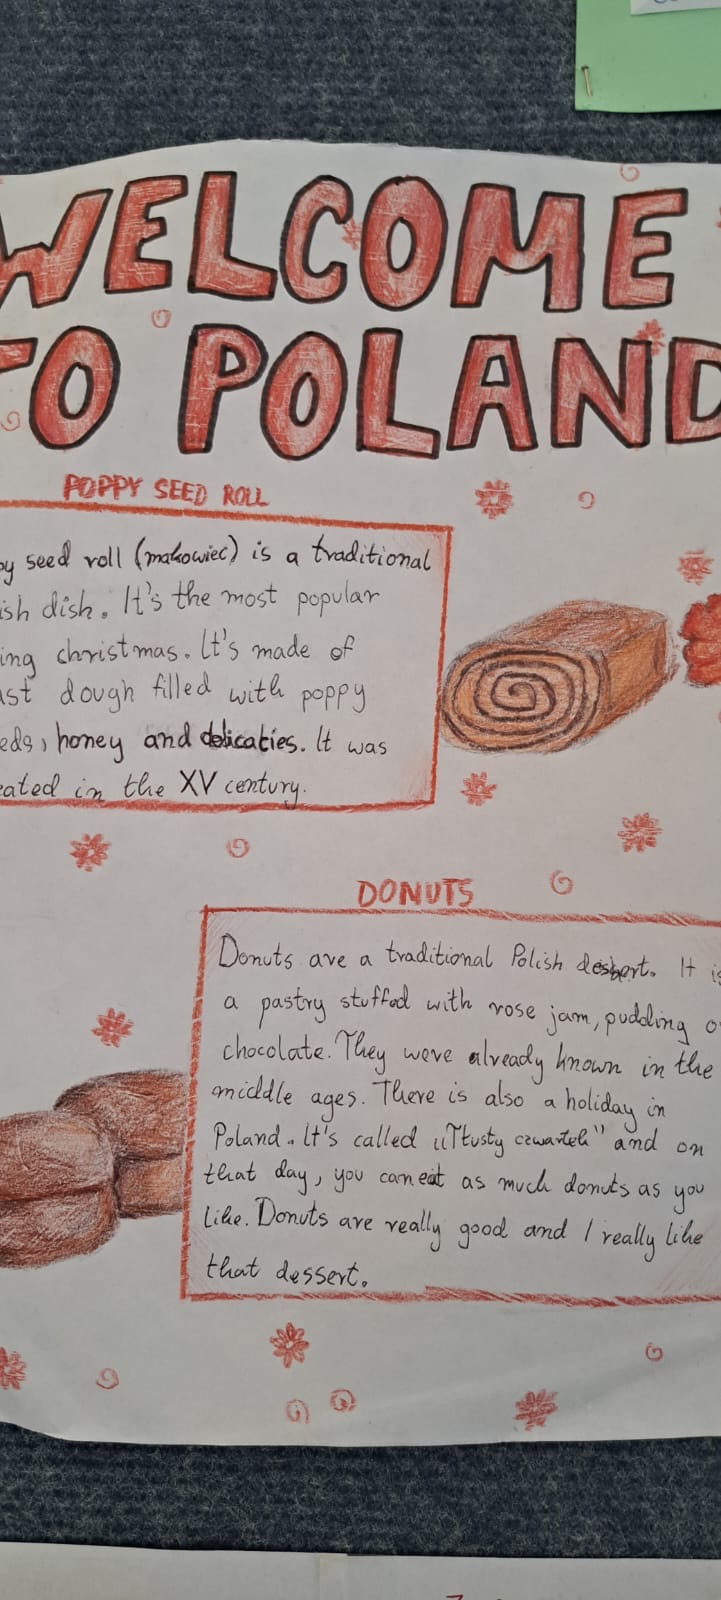 WELCOME
TO POLAND
POPPY SEED ROLL
py seed roll (makowiec) is a traditional
ish dish. It's the most popular
ing christmas. It's made of
ast dough filled with poppy
eds, honey and delicaties. It was
eated in the XV century.
DONUTS
Donuts are a traditional Polish dessert. It is
a pastry stuffed with rose jam, pudding o
chocolate. They were already known in the
middle ages. There is also a holiday in
Poland. It's called „Tłusty czwartek" and on
that day, you can eat as much donuts as you
like. Donuts are really good and I really like
that dessert.